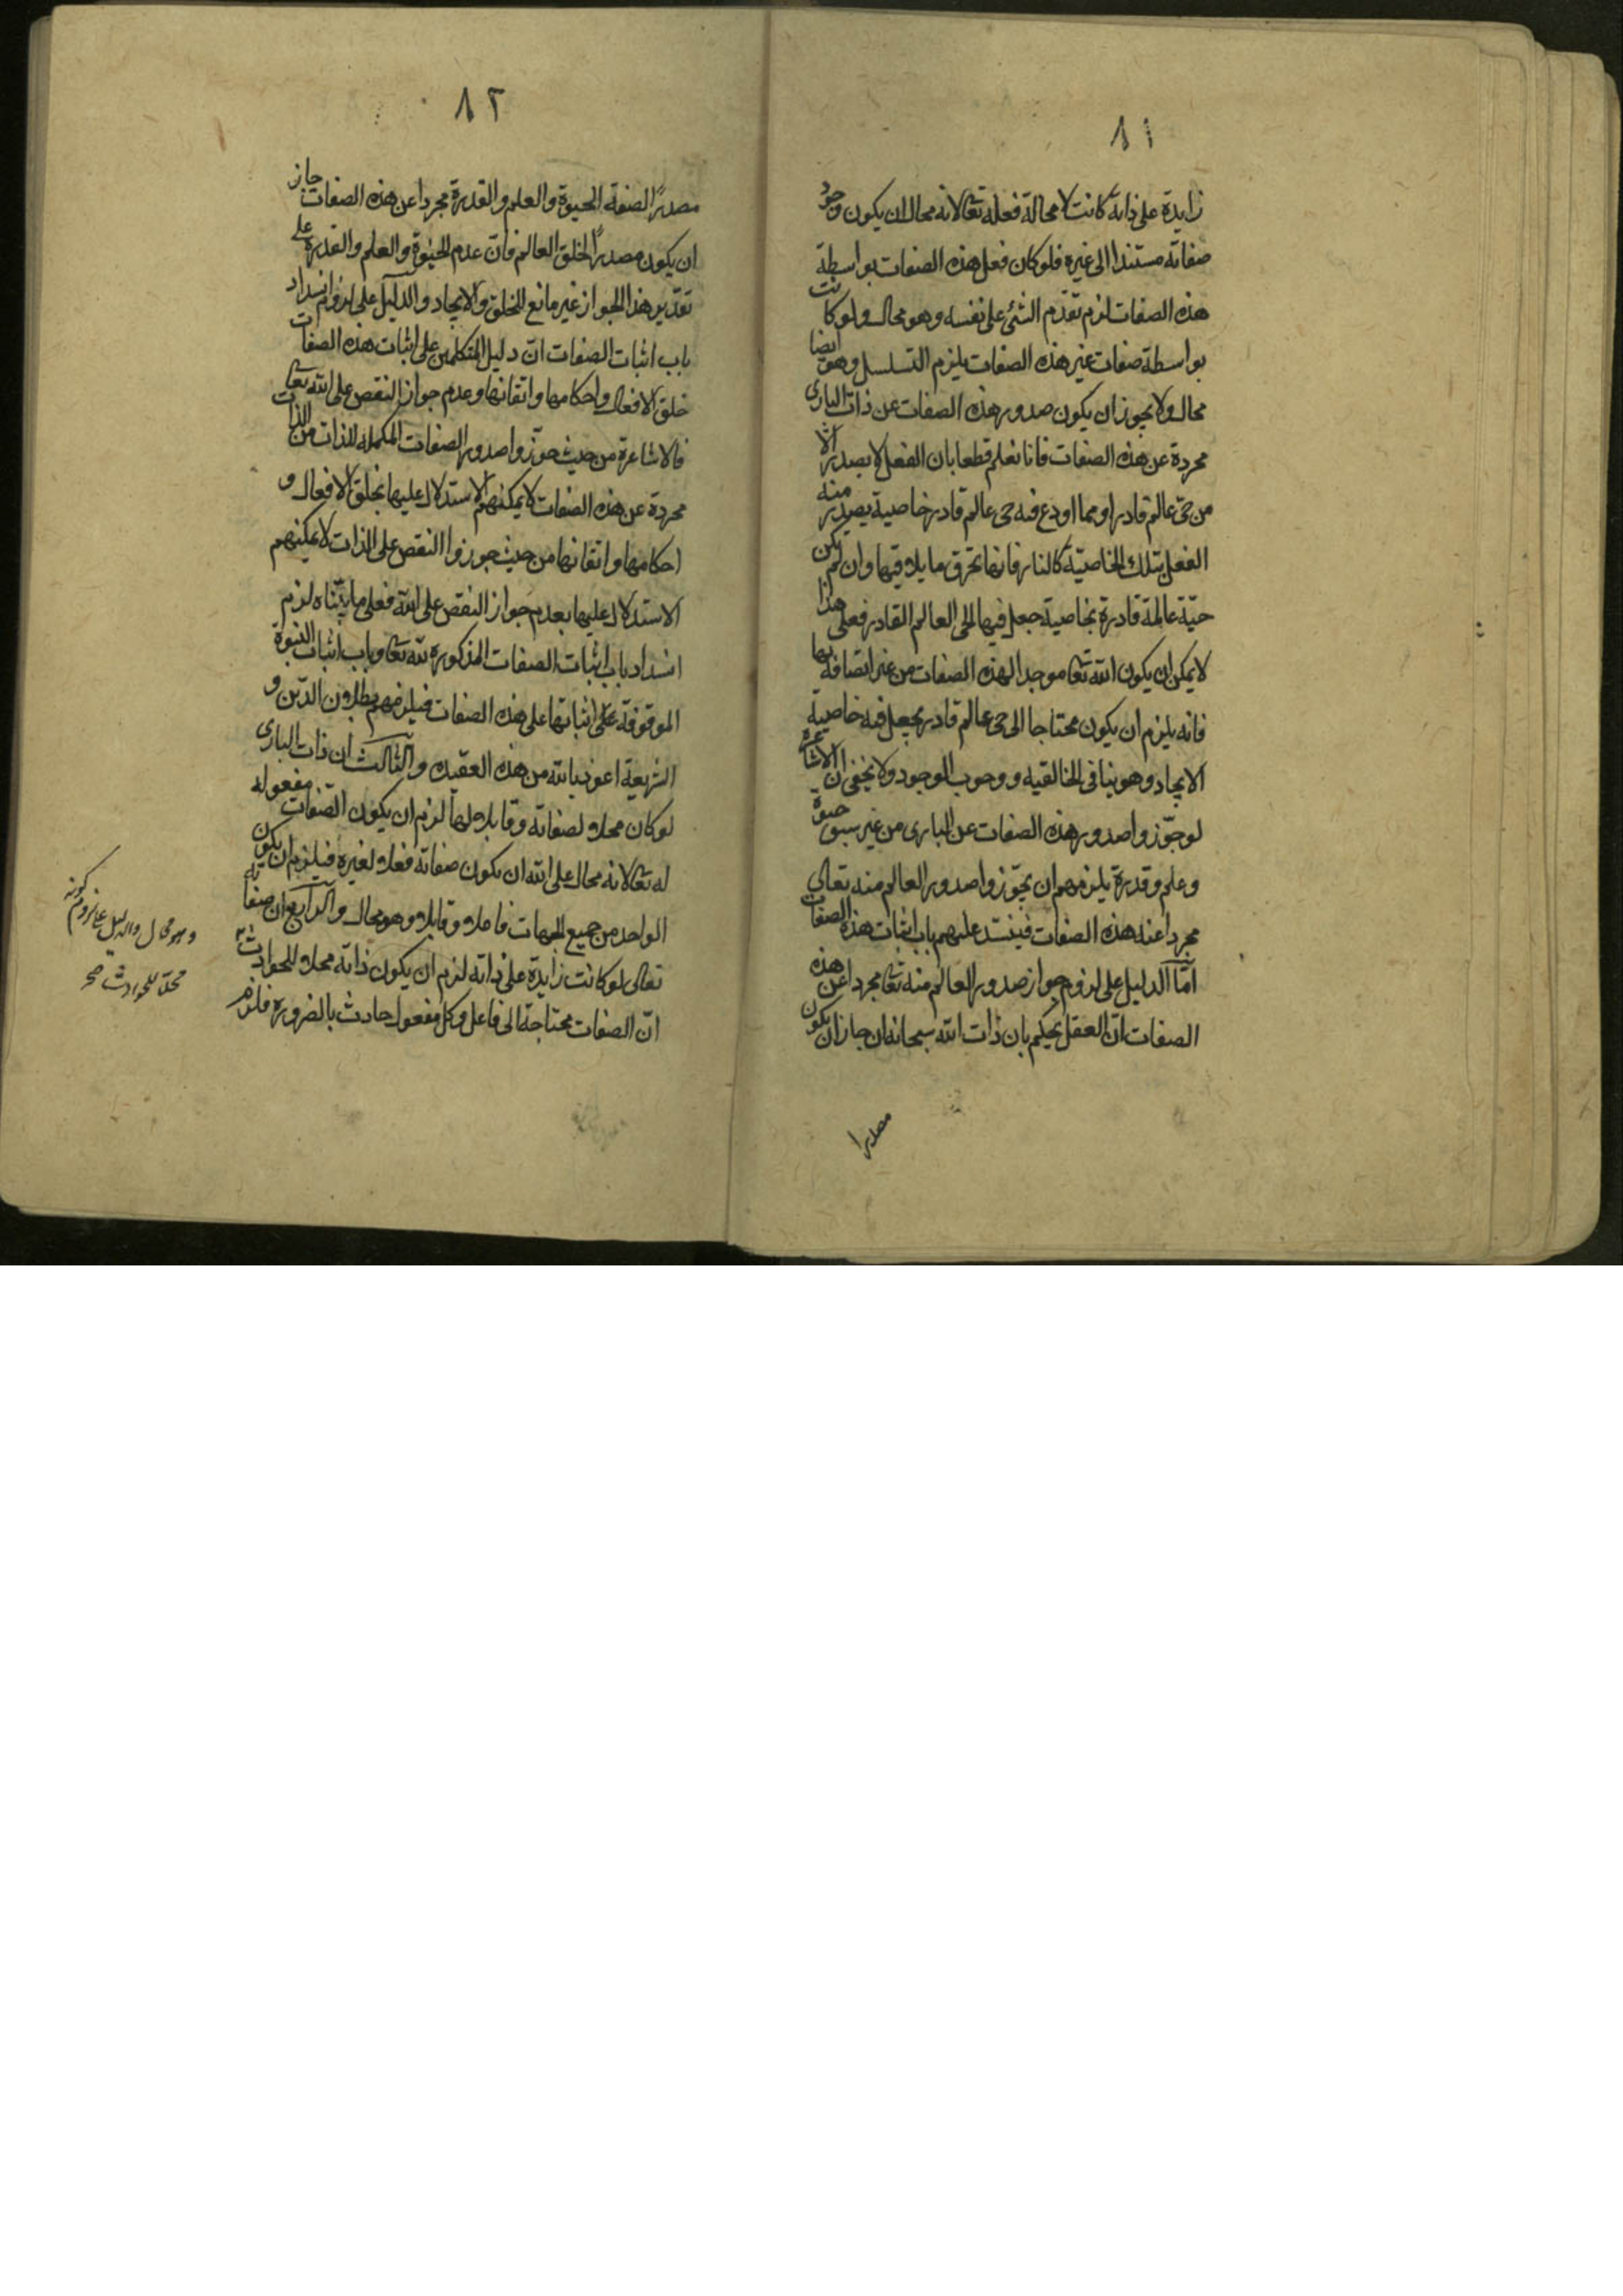 ٨١
زايدة على ذاته كانت لا محالة فعله تعالى لانه محال ان يكون وجود
صفاته مستندا الى غيره فلو كان فعل هذه الصفات بواسطة
هذه الصفات لزم تقدم الشئ على نفسه وهو محال ولو كانت
بواسطة صفات غير هذه الصفات يلزم التسلسل وهو ايضا
محال ولا يجوز ان يكون صدور هذه الصفات عن ذات البارى
مجردة عن هذه الصفات فانا نعلم قطعا بان الفعل لا يصدر الا
من حى عالم قادر او مما اودع فيه حى عالم قادر خاصية يصدر منه
الفعل بتلك الخاصيّة كالنار فانها تحرق ما يلاقيها وان لم تكن
حيّة عالمة قادرة بخاصية جعل فيها الحى العالم القادر فعلى هذا
لا يمكن ان يكون الله تعا موجدا لهذه الصفات من غير اتصافه بها
فانه يلزم ان يكون محتاجا الى حى عالم قادر يجعل فيه خاصية
الايجاد وهو ينافى الخالقيه ووجوب الوجود ولا يخفى ان الاشاعرة
لو جوّزوا صدور هذه الصفات عن البارى من غير سبق حيوة
وعلم وقدرة يلزمهم ان يجوّزوا صدور العالم منه تعالى
مجردا عنه هذه الصفات فينسد عليهم باب اثبات هذه الصفات
امّا الدليل على لزوم جواز صدور العالم منه تعا مجردا عن هذه
الصفات انّ العقل يحكم بان ذات الله سبحانه ان جاز ان يكون
مصدرا
٨٢
مصدرًا لصفة الحيوة والعلم والقدرة مجردا عن هذه الصفات جاز
ان يكون مصدرًا لخلق العالم فانّ عدم الحيوة والعلم والقدرة على
تقدير هذا الجواز غير مانع للخلق والايجاد والدليل على لزوم انسداد
باب اثبات الصفات انّ دليل المتكلمين على اثبات هذه الصفات
خلق الافعال واحكامها واتقانها وعدم جواز النقص على الله تعا
فالاشاعرة من حيث جوّزوا صدور الصفات المكمله للذات من الذات
مجردة عن هذه الصفات لا يمكنهم الاستدلال عليها بخلق الافعال و
احكامها واتقانها من حيث جوزوا النقص على الذات لا يمكنهم
الاستدلال عليها بعدم جواز النقص على الله فعلى ما بيّناه لزم
انسداد باب اثبات الصفات المذكورة لله تعا وباب اثبات النبوة
الموقوفة على اثباتها على هذه الصفات فيلزمهم بطلان الدّين و
الشريعة اعوذ بالله من هذه العقيده والثالث ان ذات البارى
لو كان محلا لصفاته وقابلا لها لزم ان يكون الصّفات مفعوله
له تعا لانه محال على الله ان يكون صفاته فعلا لغيره فيلزم ان يكون
الواحد من جميع الجهات فاعلا وقابلا وهو محال والرابع ان صفاته
تعالى لو كانت زايدة على ذاته لزم ان يكون ذاته محلا للحوادث
انّ الصفات محتاجة الى فاعل وكل مفعول حادث بالضرورة فلزم
وهو محال والدليل على لزوم كونه
محلا للحوادث صح